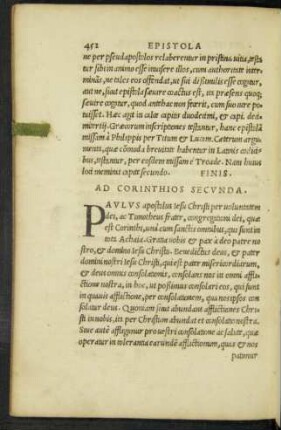 452 EPISTOLA
ne per pseudapostolos relaberentur in pristinã uitã, testa
tur sibi in animo esse inuisere illos, cum authoritate inter
minãs, ne tales eos offendat, ut sibi dissimilis esse cogatur,
autne, sicut epistola sæuire coactus est, in præsens quoq;
sæuire cogatur, quod antehac non fecerit, cum suo iure po
tuisset. Hæc agit in calce capitis duodecimi, & capi. deci
mitertij. Græcorum inscriptiones testantur, hanc epistolã
missam è Philippis per Titum & Lucam. Cæterum argumẽ
tum, quæ cõmodã breuitate habentur in Latinis codici
bus, testantur, per eosdem missam è Troade. Nam huius
loci meminit capite secundo. FINIS.
AD CORINTHIOS SECVNDA.
PAVLVS apostolus Iesu Christi per uoluntatem
dei, ac Timotheus frater, congregationi dei, quæ
est Corinthi, unà cum sanctis omnibus, qui sunt in
tota Achaia. Gratia uobis & pax à deo patre no
stro, & domino Iesu Christo. Benedictus deus, & pater
domini nostri Iesu Christi, qui est pater misericordiarum,
& deus omnis consolationis, consolans nos in omni affli
ctione nostra, in hoc, ut possimus consolari eos, qui sunt
in quauis afflictione, per consolationem, qua nos ipsos con
solatur deus. Quoniam sicut abundant afflictiones Chri
sti in nobis, ita per Christum abundat et consolatio nostra.
Siue autẽ affligimur pro uestri consolatione ac salute, quæ
operatur in tolerantia earundẽ afflictionum, quas & nos
patimur